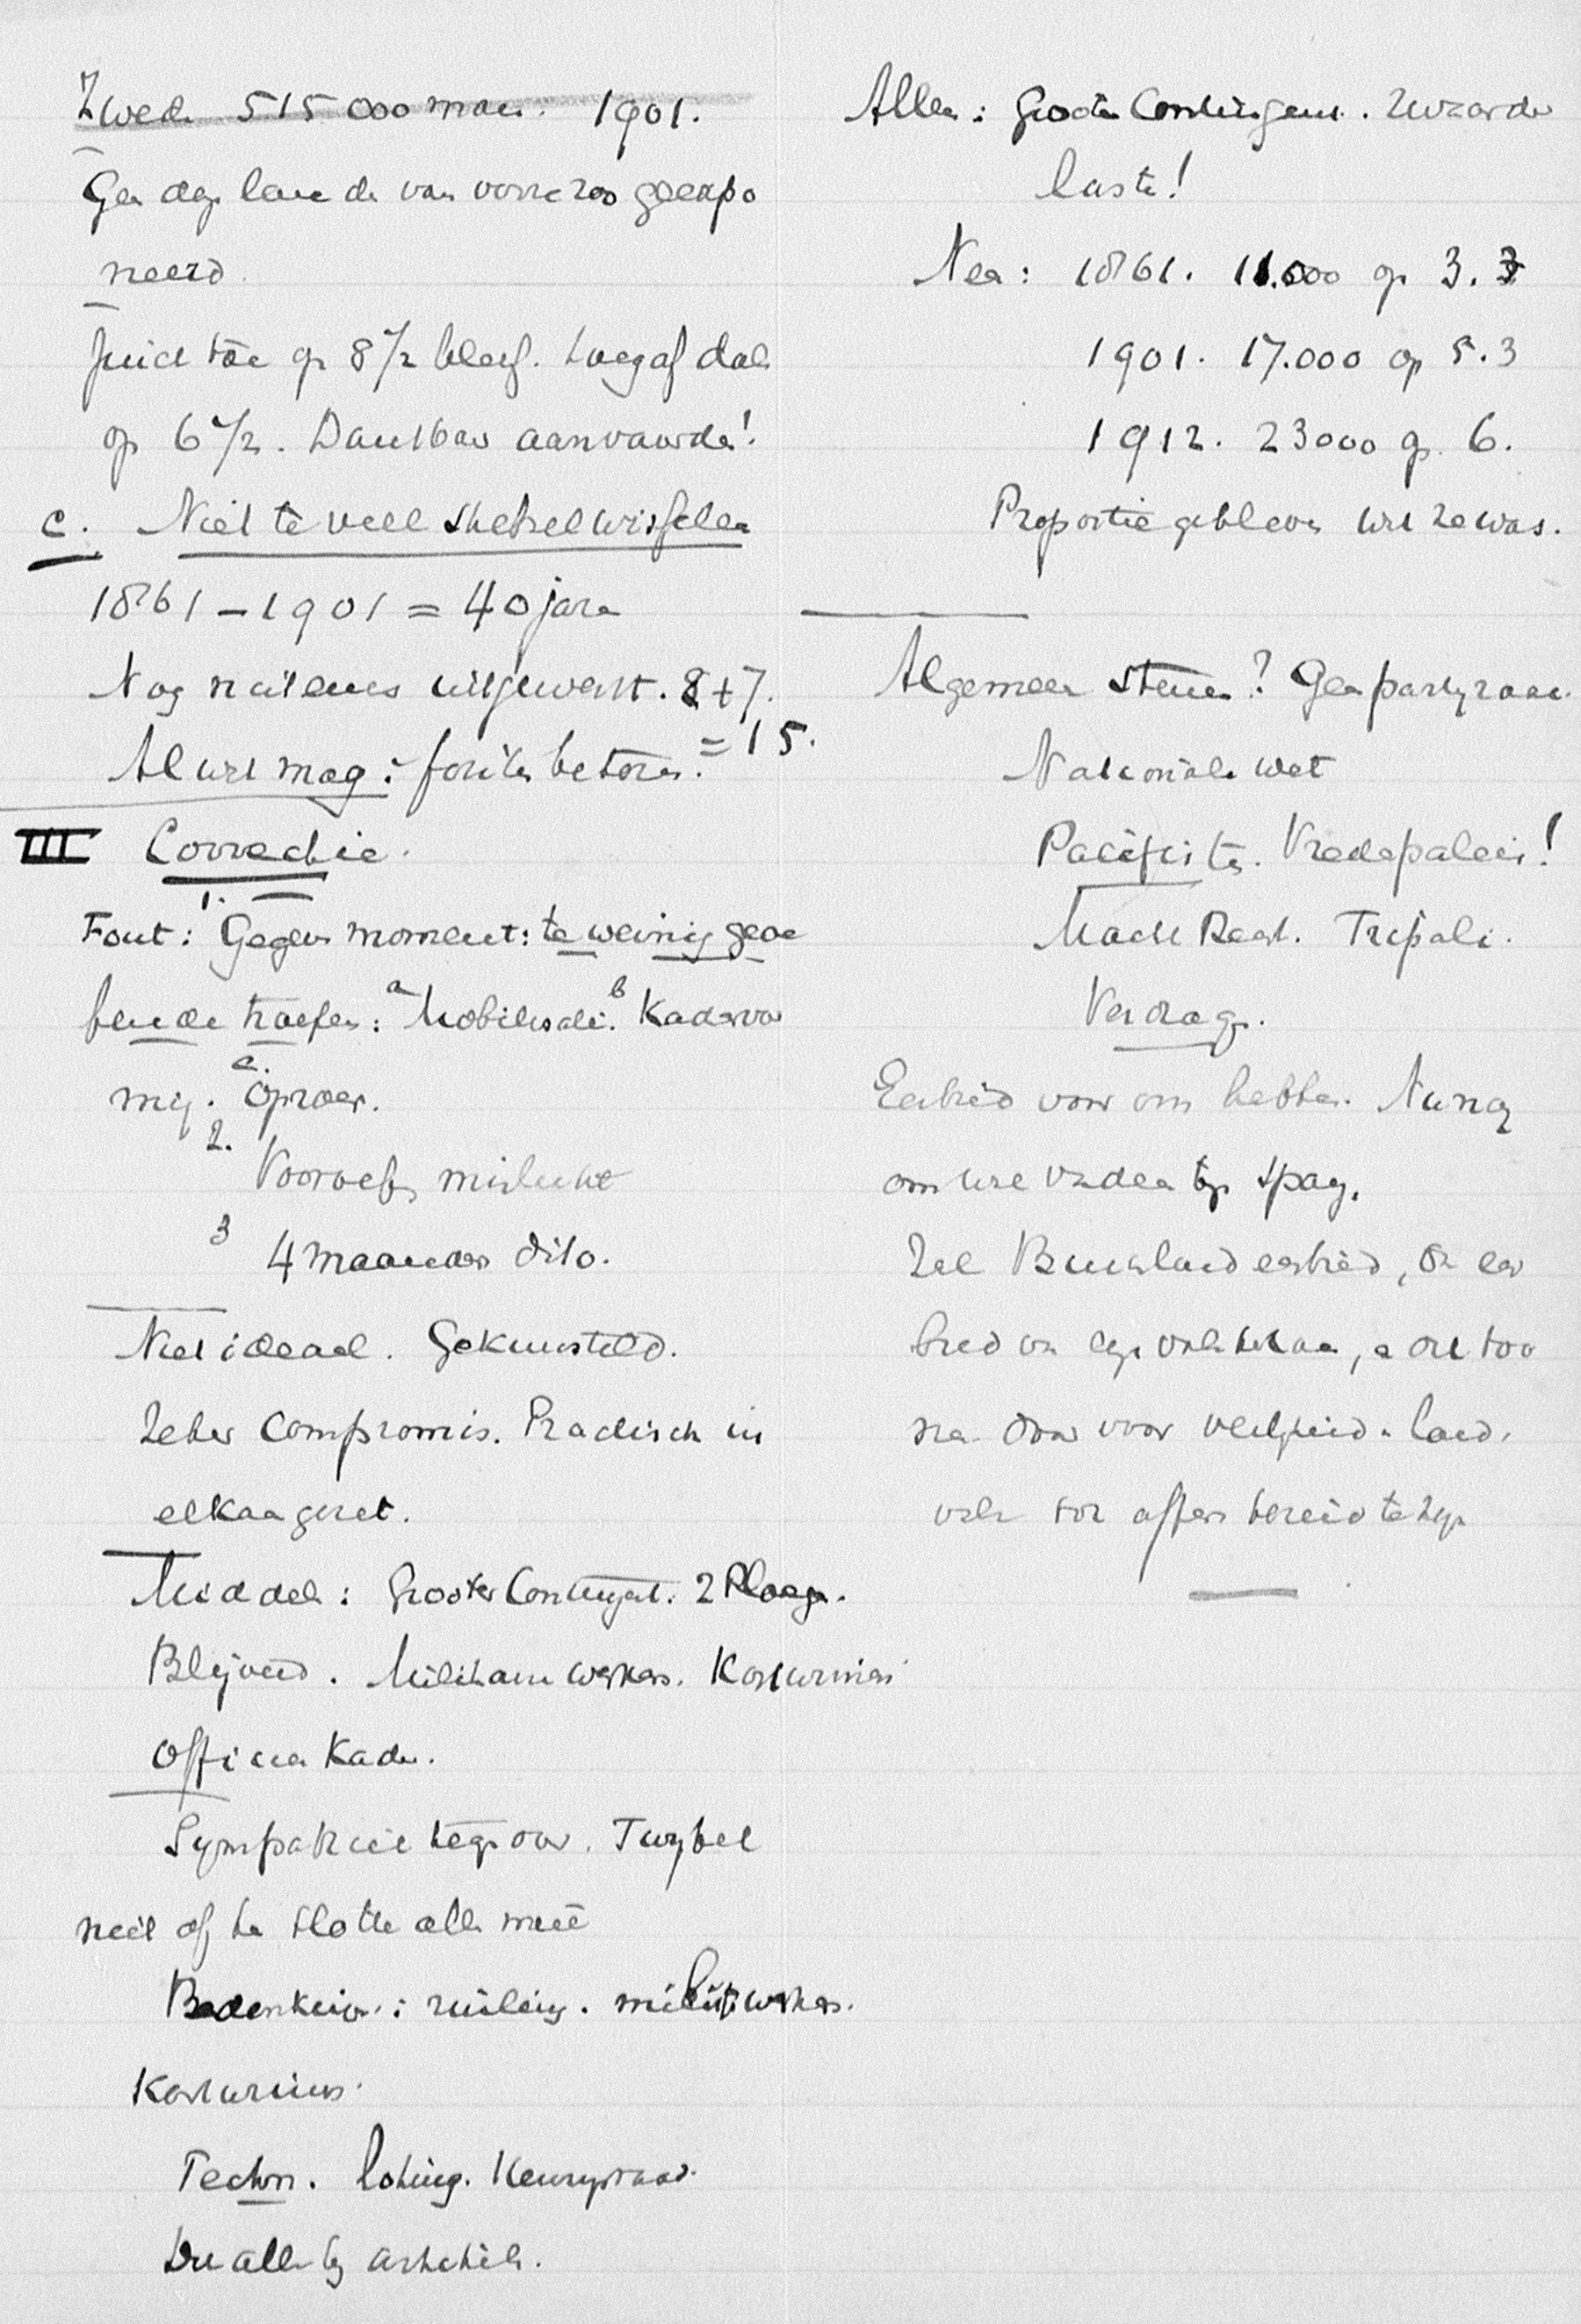 Zwed. 515 000 man. 1901.
Gen dag lan de van vorre zoo geexpo
neerd.
op 8 1/2 bleef. dal
op 6 1/2. Dankbaar aanvaarde!
c. Niet te veel stelsel wisselen
1861 – 1901 = 40 jare
Nog niet eens uitgewerkt. 8 + 7.
= 15.
Al wat mag: fouten betere.
III Correctie.
Fout: 1. Gegeven moment: te weinig geoe
fende troepen: a Mobilisatie. b Kadervor
ming. c. Oproer.
2. Vooroef. mislukt
3 4 maanden dito.
Niet ideaal. Gekunsteld.
Zeker compromis. Practisch in
elkaar gezet.
Middel: Grooter Contingent. 2 Ploegen.
Blijvend. Militaire werkers. Kostwinner
Officier Kader.
Sympathie tegenover. Twijfel
niet of ten slotte alle mee
Bedenking: ruiling. milit. werkers.
Kostwinners.
Techn. loting. Keuringsraad.
Dit alle bij artikelen.
Allen: Groote Contingent. Zwaarder
laste!
Nee: 1861. 11.000 op 3.3
1901. 17.000 op 5.3
1912. 23000 op 6.
Proportie gebleven wat ze was.
Algemeen steun? Gen partyzaak.
Nationale wet
Pacifisten. Vredepaleis!
Macht Recht. Tripoli.
Verdrag.
Eerbied voor ons hebben. Nu nog
om onze vaderen tegen Spanj.
Zal Buitenland eerbied, en eer
bied van eigen volk
na door voor land.
volk tot offers bereid te zijn